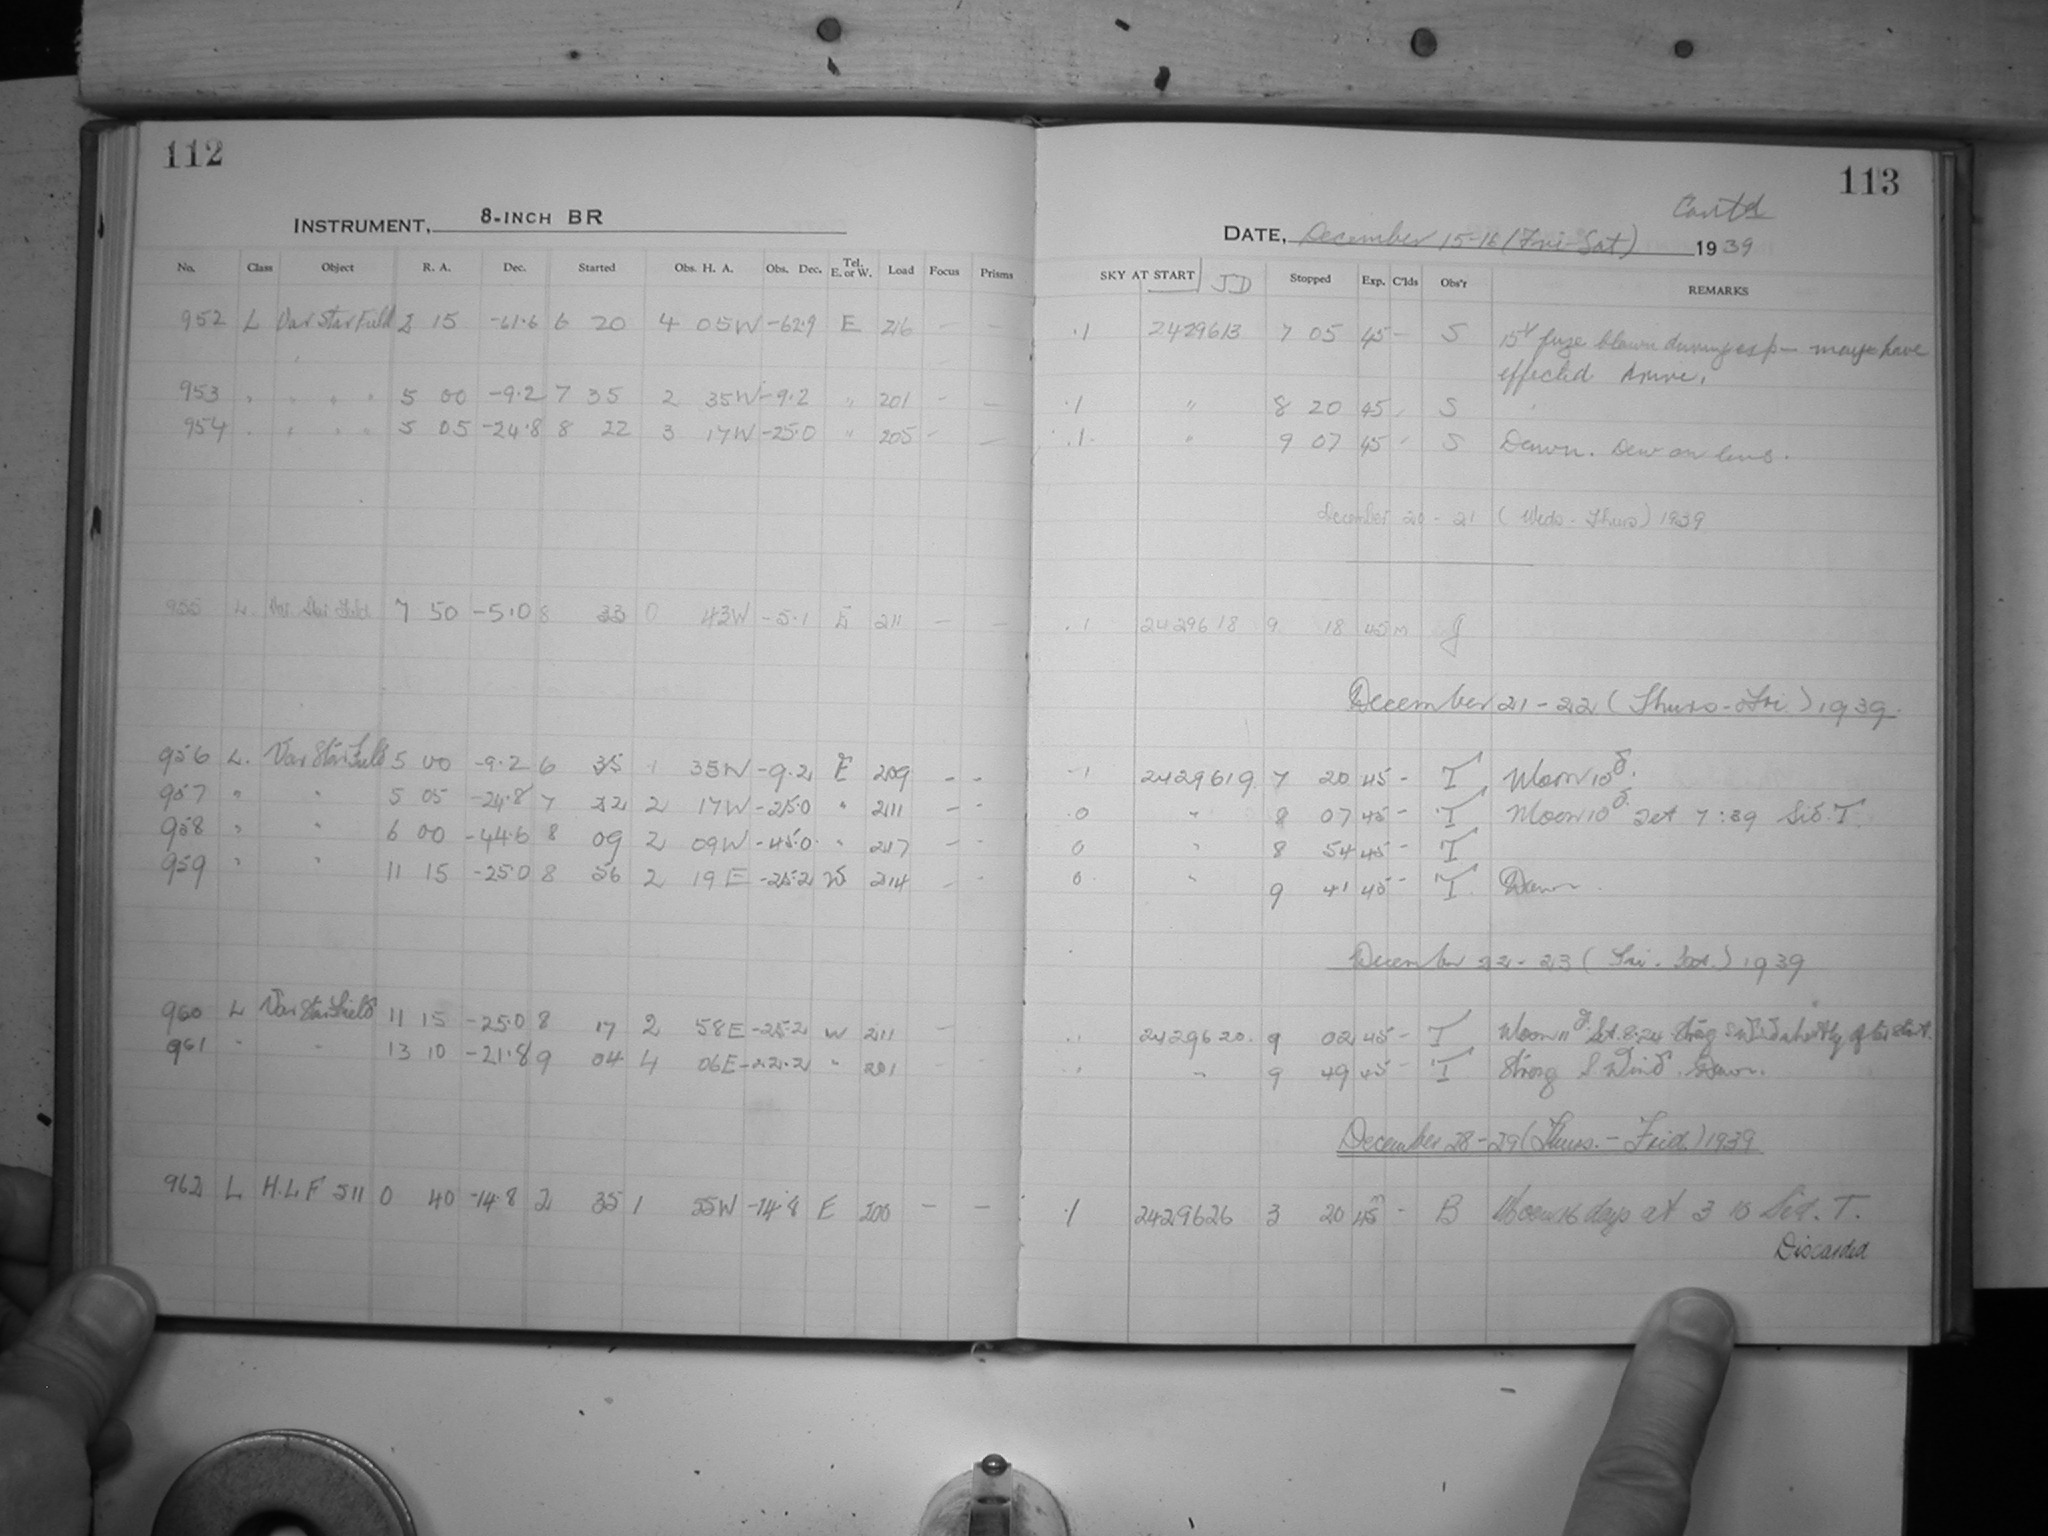 112
INSTRUMENT, 8-INCH BR
No. Class Object R. A. Dec. Started Obs. H. A. Obs. Dec. Tel. E. or W. Load Focus Prisms
952 L Var Star Field 2 15 -61.6 6 20 4 05W -62.9 E 216 - -
953 " " " " 5 00 -9.2 7 35 2 35W -9.2 " 201 - -
954 " " " " 5 05 -24.8 8 22 3 17W -25.0 " 205 - -
955 L. Var Star Field 7 50 -5.0 8 33 0 43W -5.1 E 211 - -
956 L. Var Star Field 5 00 -9.2 6 35 1 35W -9.2 E 209 - -
957 " " 5 05 -24.8 7 22 2 17W -25.0 " 211 - -
958 " " 6 00 -44.6 8 09 2 09W -45.0 " 217 - -
959 " " 11 15 -25.0 8 56 2 19E -25.2 W 214 - -
960 L Var Star Field 11 15 -25.0 8 17 2 58E -25.2 W 211 -
961 " " 13 10 -21.8 9 04 4 06E -22.2 " 201 -
962 L H.L F 511 0 40 -14.8 2 35 1 55W -14.8 E 200 - -
113
Contd
DATE, December 15-16 (Fri-Sat) 1939
SKY AT START JD Stopped Exp. C'lds Obs'r REMARKS
.1 2429613 7 05 45 - S 15V fuze blown during exp - may have
effected drive.
.1 " 8 20 45 S
.1 " 9 07 45 S Dawn. Dew on lens.
December 20 - 21 (Weds - Thurs) 1939
.1 2429618 9 18 45m J
December 21 - 22 (Thurs - Fri) 1939.
.1 2429619 7 20 45 - T Moon 10d.
.0 " 8 07 45 - T Moon 10d set 7:39 Sid. T.
0 " 8 54 45 - T
0 " 9 41 45 - T Dawn
December 22 - 23 (Fri - Sat.) 1939
.1 2429620. 9 02 45 - T Moon 11d Set. 8:24 Strong S Wind shortly after start.
.1 " 9 49 45 - T Strong S Wind. Dawn.
December 28 - 29 (Thurs. - Frid.) 1939
.1 2429626 3 20 45m - B Moon 16 days at 3 10 Sid. T.
Discarded